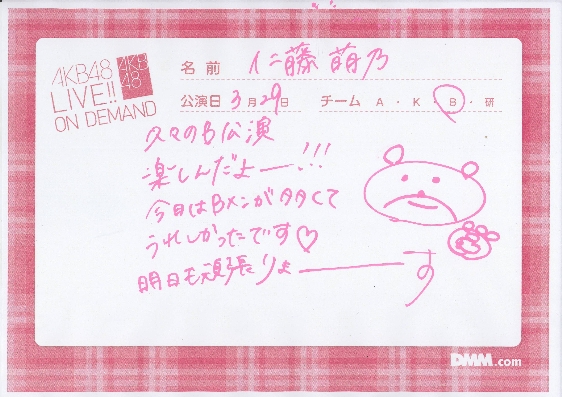 AKB48
LIVE!!
ON DEMAND
AKB
48
名前 仁藤萌乃
公演日 3月29日 チーム A・K・B・研
久々のB公演
楽しんだよー!!!
今日はBメンが多くて
うれしかったです♡
明日も頑張りよーーす
DMM.com